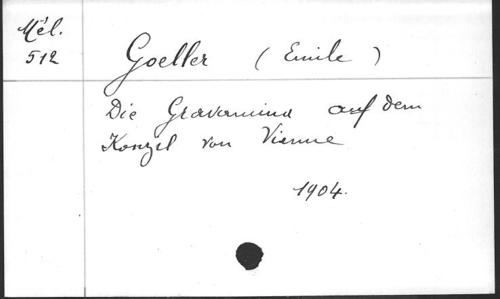 Mél.
512
Goeller (Emile)
Die Gravamina auf dem
Konzil von Vienne
1904.